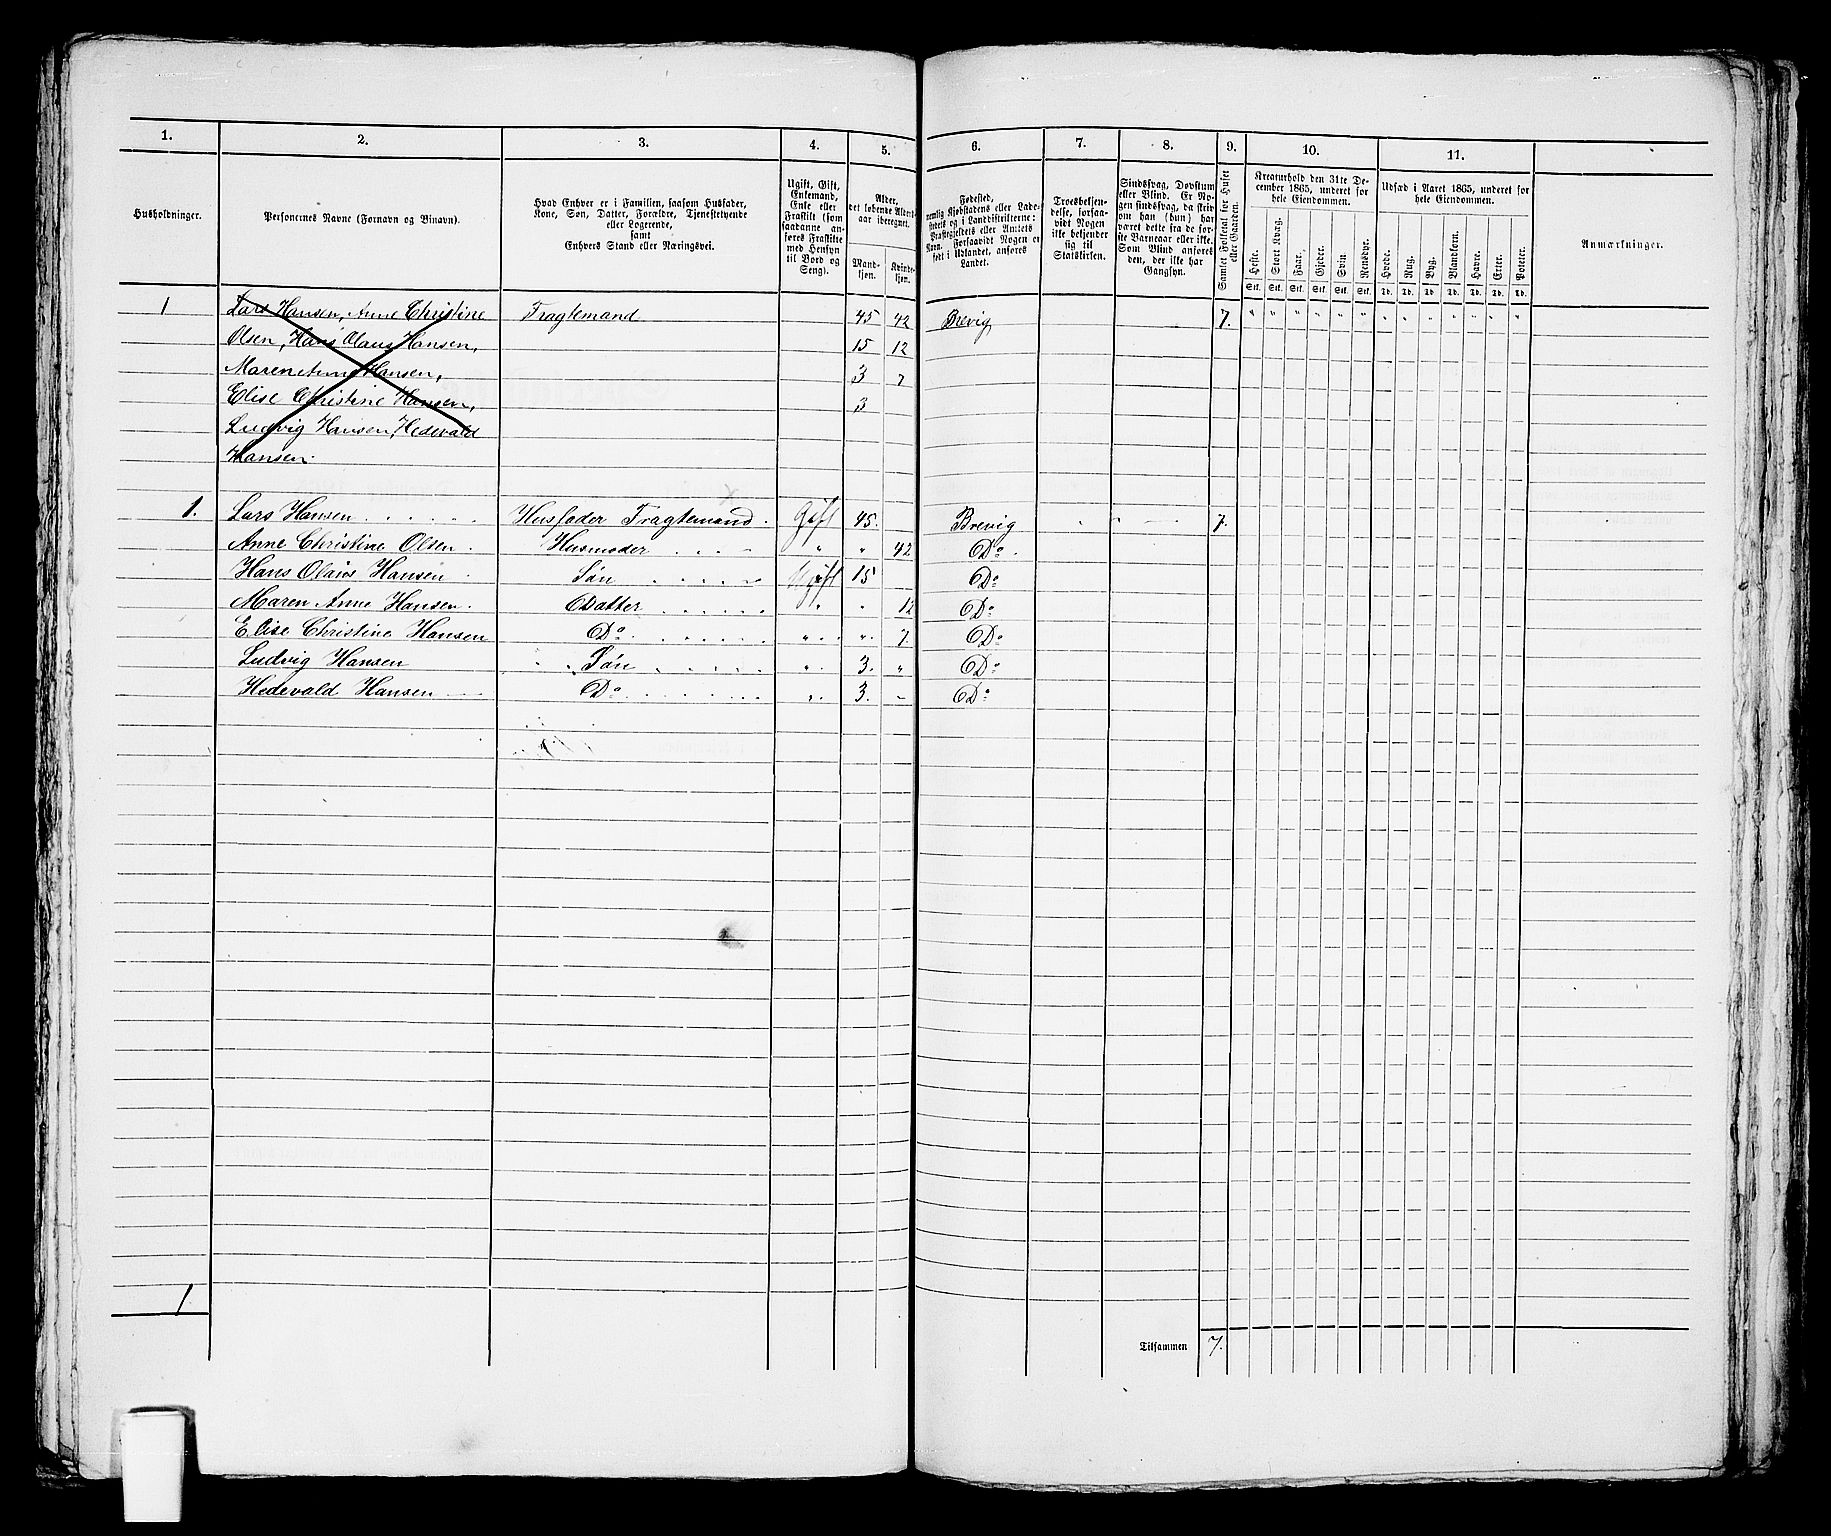 1. 2. 3. 4. 5. 6. 7. 8. 9. 10. 11.
Husholdninger.
Personernes Navne (Fornavn og Binavn).
Hvad Enhver er i Familien, saasom Husfader,
Kone, Søn, Datter, Forældre, Tjenestetyende
eller Logerende,
samt
Enhvers Stand eller Næringsvei.
Ugift, Gift,
Enkemand,
Enke eller
Fraskilt (som
saadanne an-
føres Fraskilte
med Hensyn
til Bord og
Seng).
Alder,
det løbende Alders-
aar iberegnet.
Mand-
kjøn.
Kvinde-
kjøn.
Fødested,
nemlig Kjøbstadens eller Lade-
stedets og i Landdistrikterne:
Præstegjeldets eller Amtets
Navn. Forsaavidt Nogen er
født i Udlandet, anføres
Landet.
Troesbekjen-
delse, forsaa-
vidt Nogen
ikke bekjender
sig til
Statskirken.
Sindssvag, Døvstum
eller Blind. Er No-
gen sindssvag, da skriv
om han (hun) har
været dette fra de før-
ste Barneaar eller ikke.
Som Blind anføres
den, der ikke har
Gangsyn.
Samlet Folketal for Huset
eller Gaarden.
Kreaturhold den 31te De-
cember 1865, underet for
hele Eiendommen.
Heste. Stort Kvæg. Faar. Gjeder. Svin. Rensdyr.
Stk. Stk. Stk. Stk. Stk. Stk.
Udsæd i Aaret 1865, underet for
hele Eiendommen.
Hvede. Rug. Byg. Blandkorn. Havre. Erter. Poteter.
Td. Td. Td. Td. Td. Td. Td.
Anmærkninger.
1 Lars Hansen, Anne Christine Fragtemand 45 42 Brevig 7. " " " " " " " " " " " " "
Olsen, Hans Olaus Hansen, 15 12
Maren Anne Hansen, 3 7
Elise Christine Hansen, 3
Ludvig Hansen, Hedevald
Hansen.
1. Lars Hansen Husfader Fragtemand. Gift 45. Brevig 7.
Anne Christine Olsen. Husmoder " " 42 Do.
Hans Olaus Hansen Søn Ugift 15 Do
Maren Anne Hansen. Datter " " 12 Do
Elise Christine Hansen Do " " 7. Do
Ludvig Hansen Søn " 3. " Do
Hedevald Hansen Do " 3. - Do
1
Tilsammen 7.